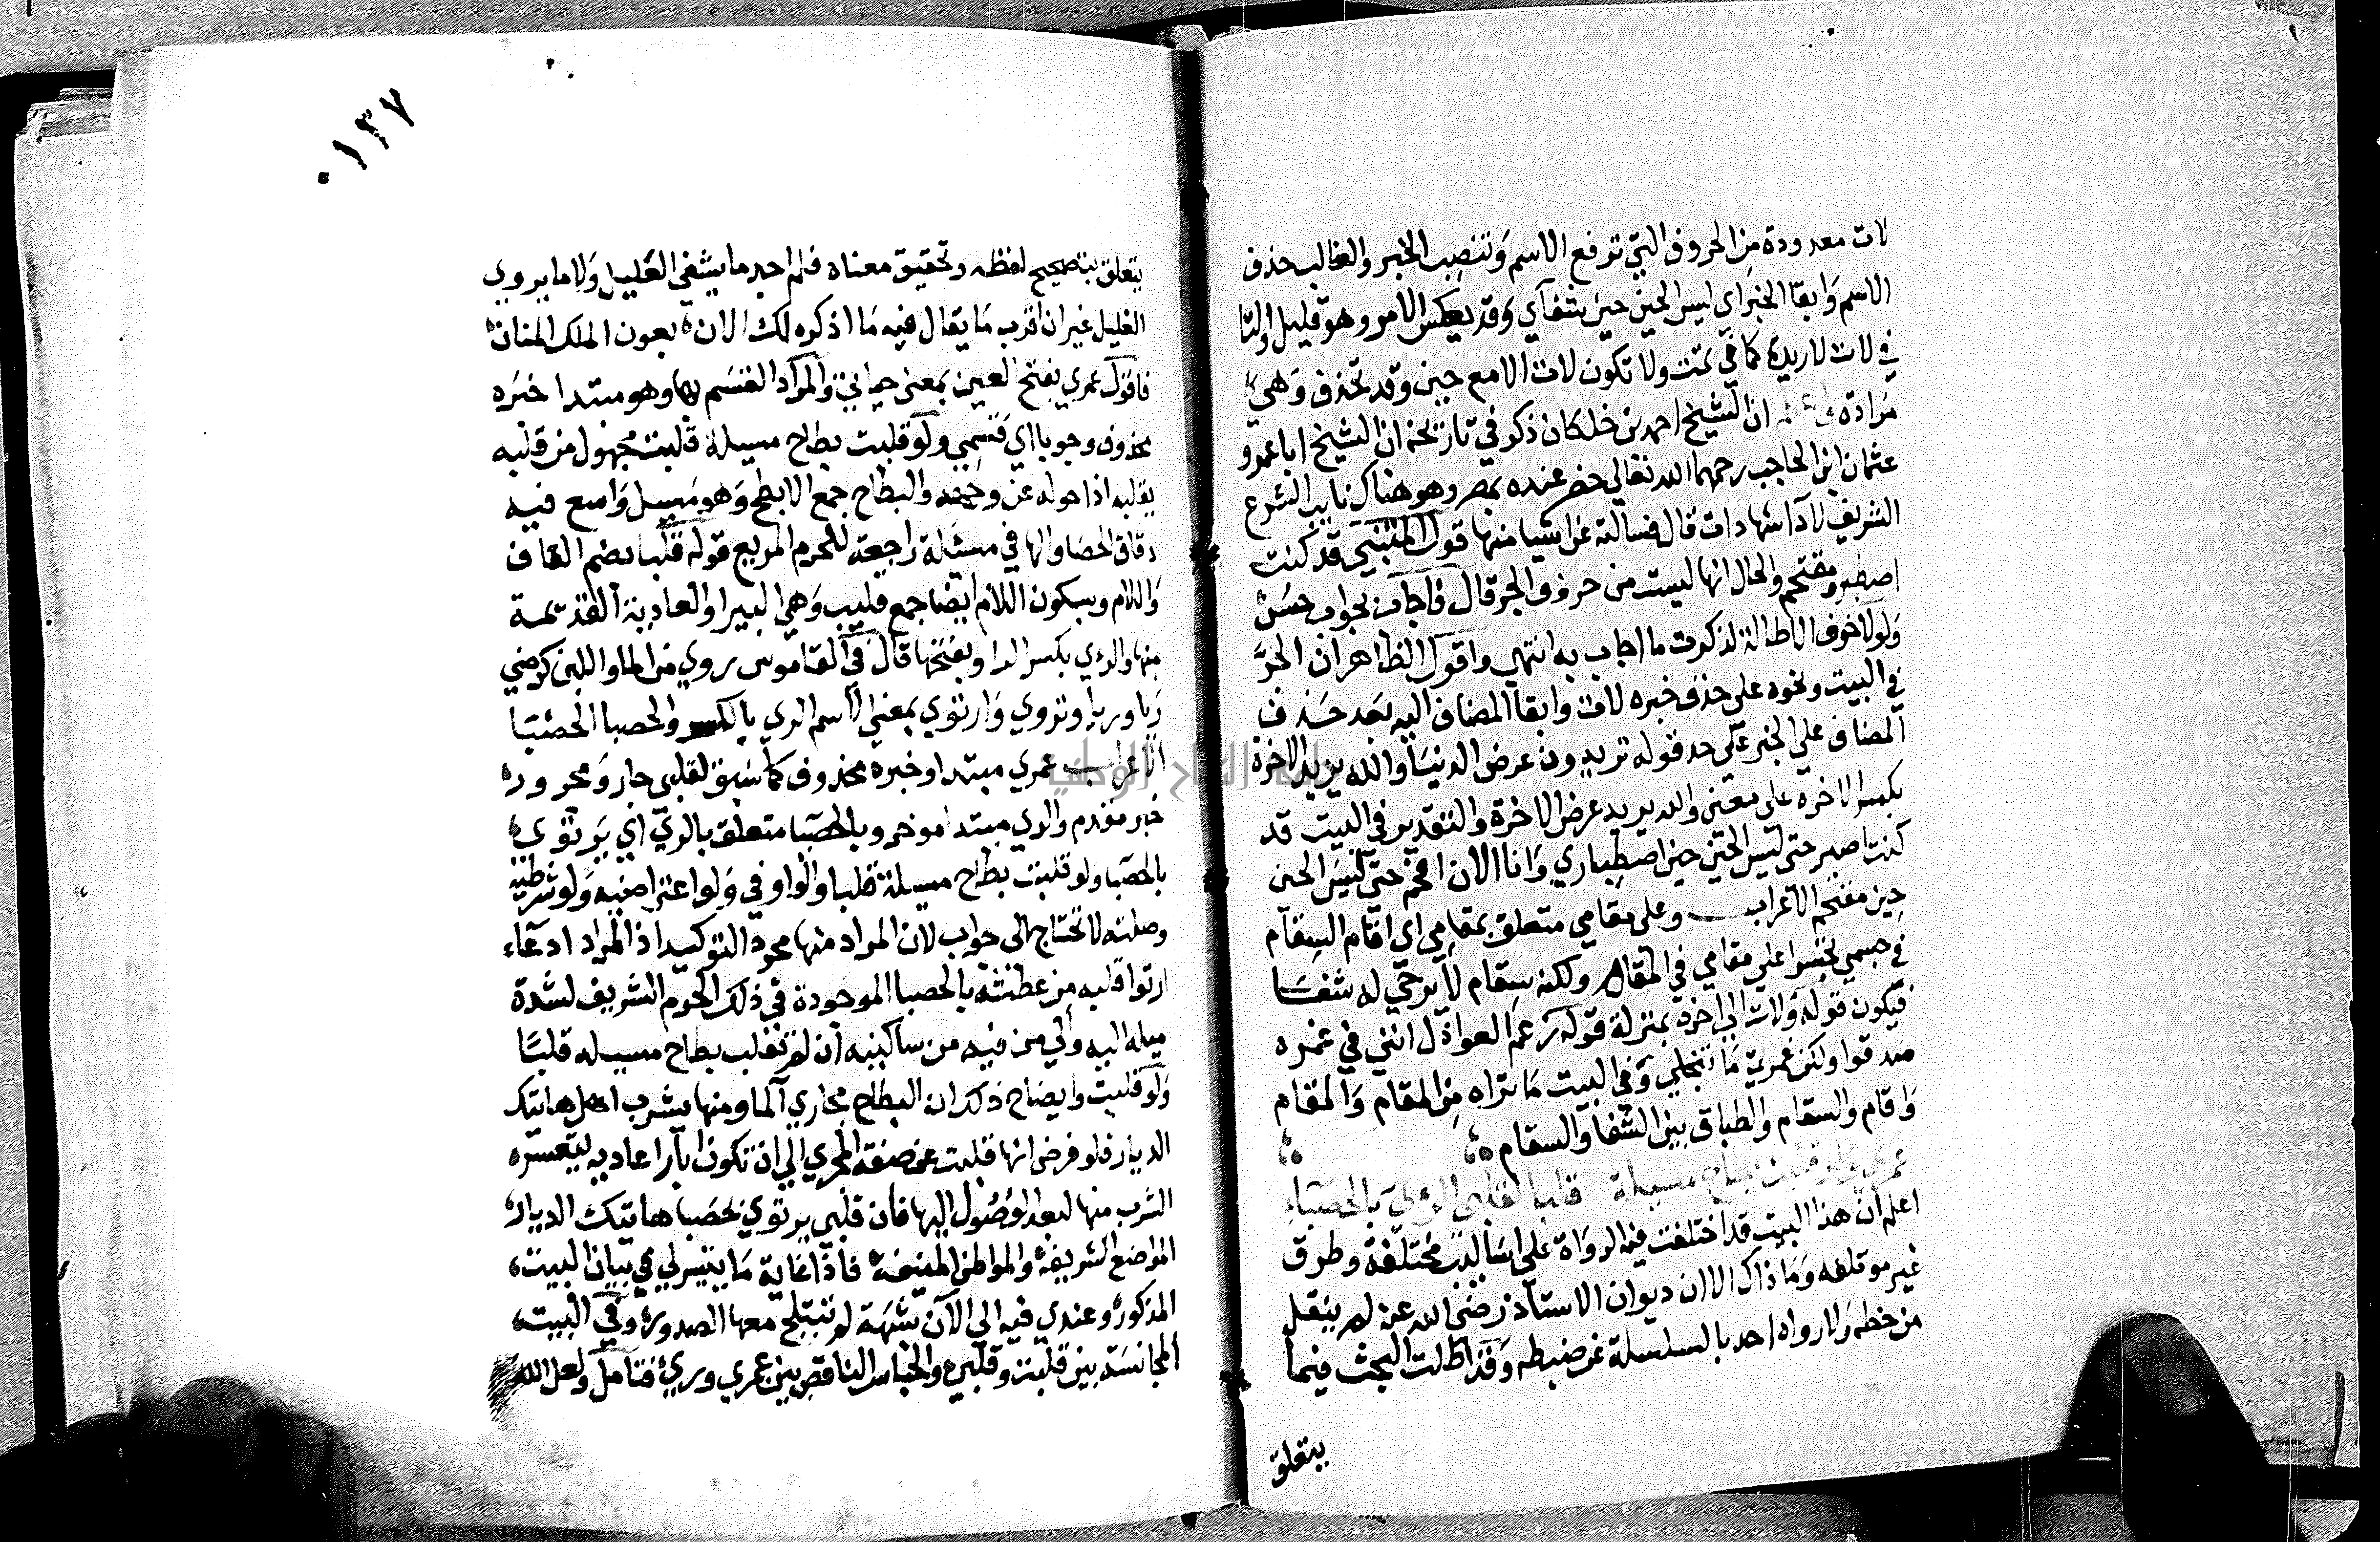 لات معدودة من الحروف التي ترفع الاسم وتنصب الخبر والغالب حذف
الاسم وابقا الخبر اي ليس الحين حين تنفآي وقد يعكس الامر وهو قليل والتا
في لات لازيدة كما في ثمت ولا تكون لات الا مع حين وقد تحذف وهي
مرادة ان الشيخ احمد بن خلكان ذكر في تاريخه ان الشيخ ابا عمرو
عثمان ابن الحاجب رحمهما الله تعالى حضر عنده بمصر وهو هناك نايب الشرع
الشريف لاداشهادات قال فسالته عن اشيا منها قول المتنبي قد كنت
اصطبر ومقتحم والحال انها ليست من حروف الجر قال فاجاب بجواب حسن
ولولا خوف الاطالة لذكرت ما اجاب به انتهى واقول الظاهر ان الجر
في البيت ونحوه على حذف خبره لات وابقا المضاف اليه بعد حذف
المضاف على الجر على حد قوله تريدون عرض الدنيا والله يريد الاخرة
بكسر الاخرة على معنى والله يريد عرض الاخرة والتقدير في البيت قد
كنت اصبر حتى ليس الحين حين اصطباري وانا الان اقحم حتى ليس الحين
حين مقتحم الاعراب وعلى مقامي متعلق بمقامي اي اقام السقام
في جسمي بحسو على مقامي في المقال ولكنه سقام لا يرجى له شفا
فيكون قوله ولات الى اخره بمنزلة قوله زعم العواذل انني في غمره
صدقوا ولكن غمرتي ما تنجلي وفي البيت ما تراه من المقام والمقام
واقام والسقام والطباق بين الشفا والسقام
عمري ولو قلبت بطاح مسيله قلبا لقلبي الري بالحصباء
اعلم ان هذا البيت قد اختلفت فيه الرواة على اساليب مختلفة وطرق
غير موتلفه وما ذاك الا ان ديوان الاستاذ رضى الله عنه لم ينقل
من خطه ولا رواه احد بالسلسلة عن ضبطه وقد اطلت البحث فيما
يتعلق
٠١٣٧
يتعلق بتصحيح لفظه وتحقيق معناه فلم اجد ما يشفي العليل ولا ما يروي
الغليل غير ان اقرب ما يقال فيه ما اذكره لك الان بعون الملك المنان
فاقول عمري بفتح العين بمعنى حياتي والمراد القسم بها وهو مبتدا خبره
محذوف وجوبا اي قسمي ولو قلبت بطاح مسيلة قلبت مجهول من قلبه
يقلبه اذا حوله عن وجهه والبطاح جمع الابطح وهو مسيل واسع فيه
دقاق الحصا والها في مسيلة راجعة للحرم المربع قوله قلبا بضم القاف
واللام وسكون اللام ايضا جمع قليب وهي البير او العادية القديمة
منها والري بكسر الرا وبفتحها قال في القاموس روي من الما واللبن كرضي
ريا وريا وتروي وارتوي بمعنى الاسم الري بالكسر والحصبا الحصبا
الاعراب عمري مبتدا وخبره محذوف كما سبق لقلبي جار ومجرور
خبر مقدم والري مبتدا موخر وبالحصبا متعلق بالري اي يرتوي
بالحصبا ولو قلبت بطاح مسيلة قلبا والواو في ولو اعتراضيه ولو شرطيه
وصلته لا تحتاج الى جواب لان المراد منها مجرد التوكيد اذ المراد ادعاء
ارتوا قلبه من عطشه بالحصبا الموجودة في ذلك الحرم الشريف لشدة
ميله اليه والي من فيه من ساكنيه ان لم تقلب بطاح مسيله قلبا
ولو قلبت وايضاح ذلك ان البطاح مجاري الما ومنها يشرب اهل هاتيك
الديار فلو فرض انها قلبت عن صفة المجري الى ان تكون ابارا عاديه ليتعسره
الشرب منها لبعد الوصول اليها فان قلبي يرتوي بحصبا هاتيك الديار
المواضع الشريفة والمواطن المنيفه فاذا غاية ما يتيسر لي في بيان البيت
المذكور وعندي فيه الى الآن شبهة لم تنبلج معها الصدور وفي البيت
المجانسة بين قلبت وقلبي والجناس الناقص بين عمري وري فتامل ولعل الله